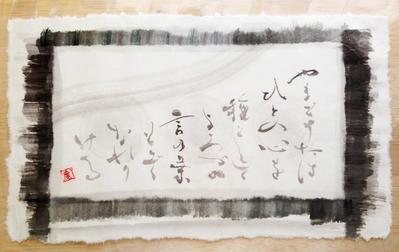 やまとうたは
ひとの心を
種として
よろづの
言の葉
とぞ
なれり
ける